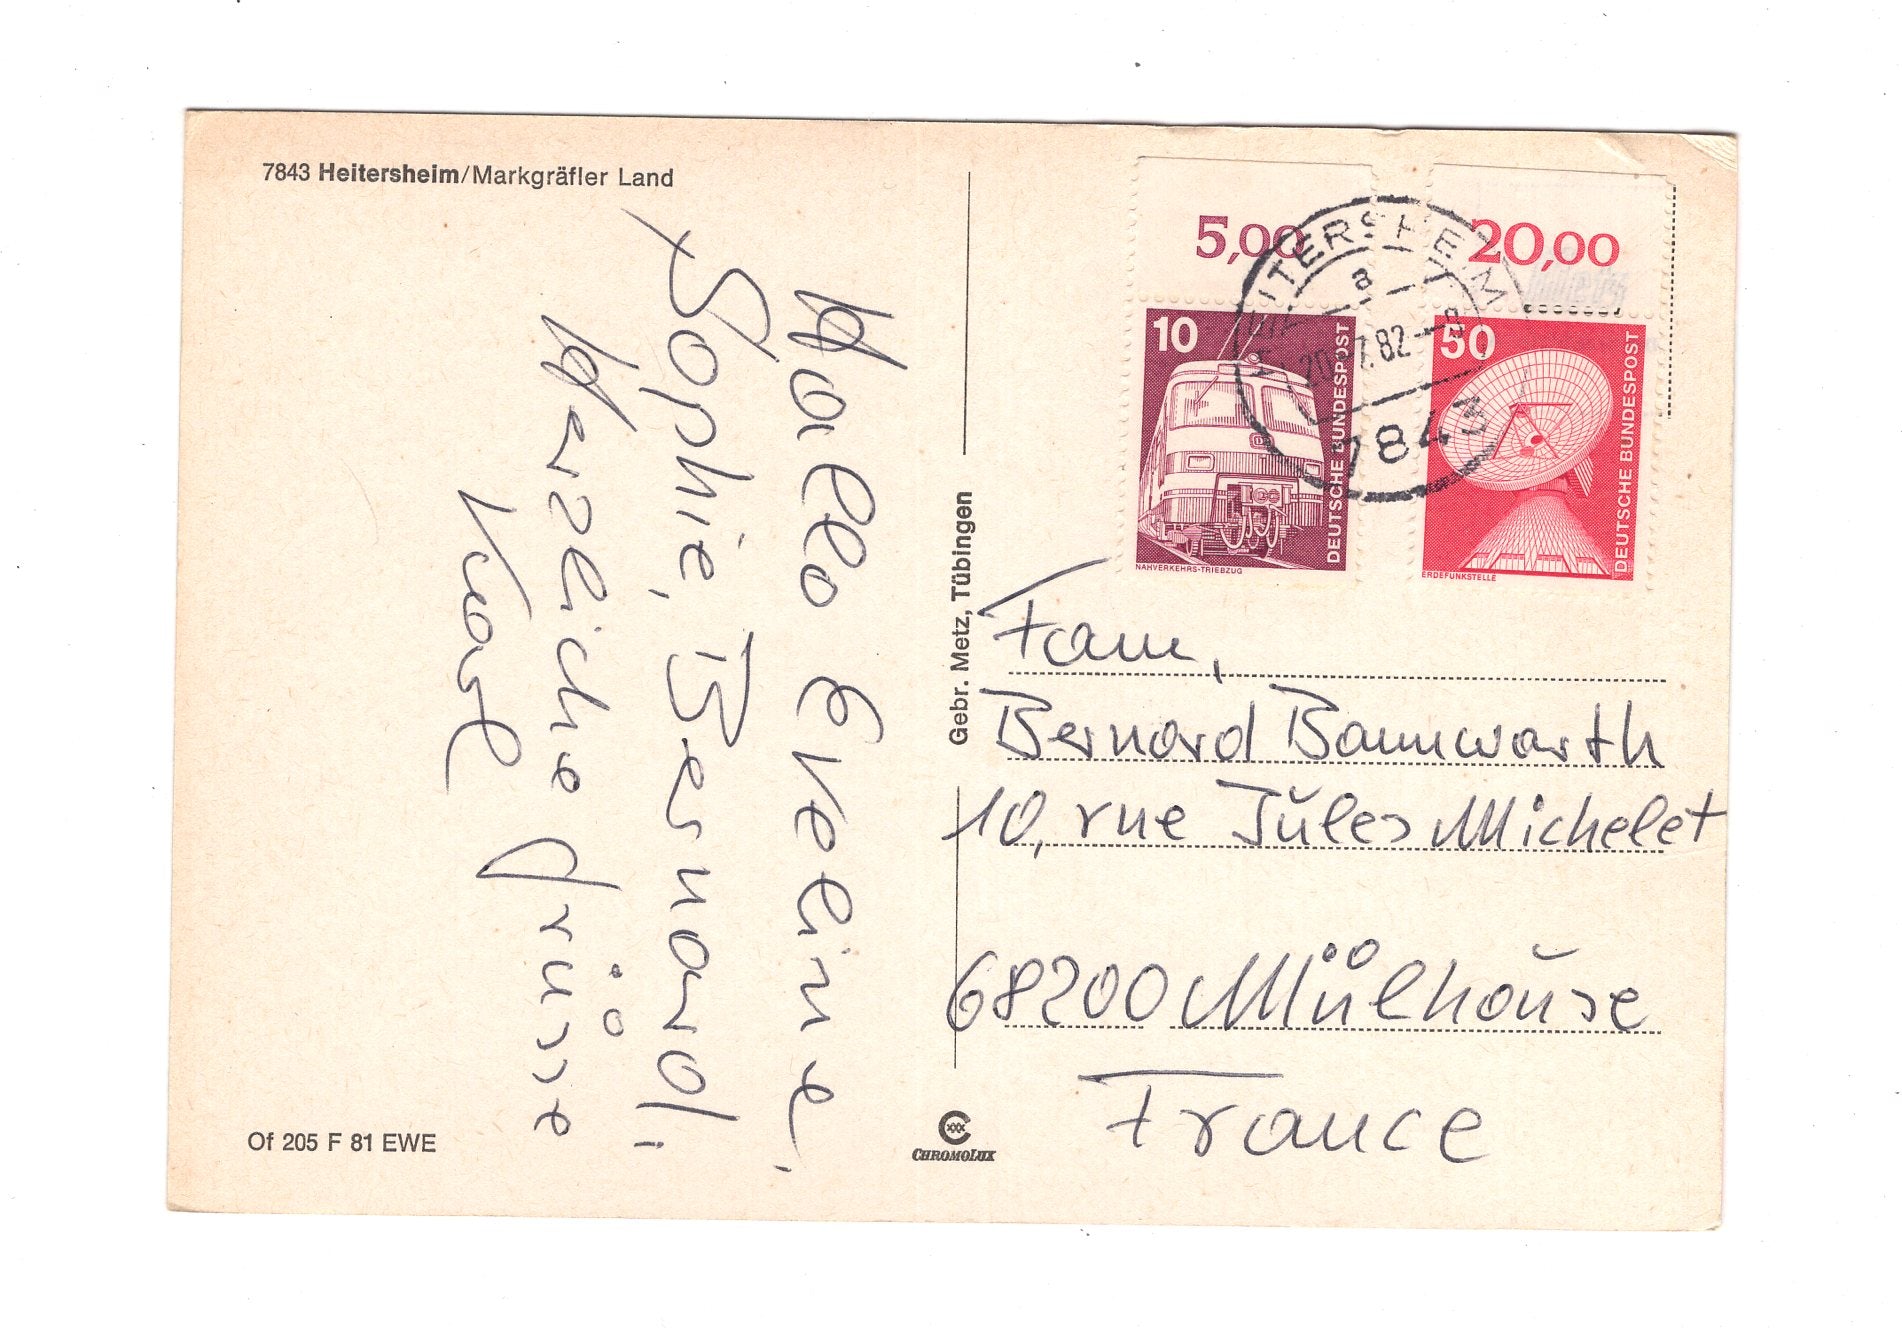 7843 Heitersheim/Markgräfler Land
Hallo Eveline,
Sophie, Bernard,
Herzliche Grüsse
Karl
Of 205 F 81 EWE
Gebr. Metz, Tübingen
CHROMOLUX
5,00
20,00
HEITERSHEIM
a
20.-7.82--9
7843
10
DEUTSCHE BUNDESPOST
NAHVERKEHRS-TRIEBZUG
50
DEUTSCHE BUNDESPOST
ERDEFUNKSTELLE
Fam,
Bernard Bannwarth
10, rue Jules Michelet
68200 Mülhouse
France